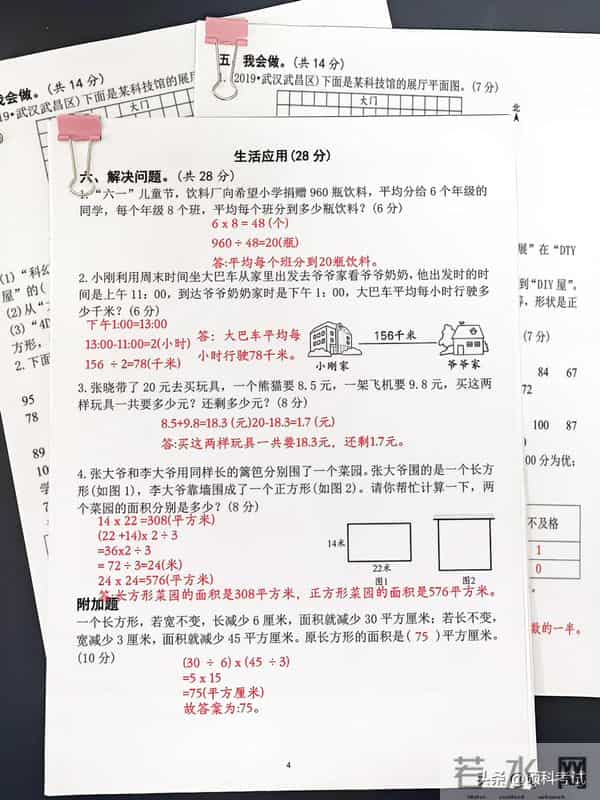 我会做。(共14分)
19•武汉武昌区)下面是某科技馆的展厅
大门
五、我会做。(共14分)
1. 2019•武汉武昌区)下面是某科技馆的展厅平面图。(7分)
大门
北
生活应用(28分)
六、解决问题。(共28分)
1.“六一”儿童节，饮料厂向希望小学捐赠960瓶饮料，平均分给6个年级的
同学，每个年级8个班，平均每个班分到多少瓶饮料？(6分)
6 x 8 = 48 (个)
960 ÷ 48=20(瓶)
答:平均每个班分到20瓶饮料。
2.小刚利用周末时间坐大巴车从家里出发去爷爷家看爷爷奶奶,他出发时的时
间是上午11：00，到达爷爷奶奶家时是下午1：00，大巴车平均每小时行驶多
少千米？(6分)
下午1:00=13:00
13:00-11:00=2(小时)
156 ÷ 2=78(千米)
答：大巴车平均每
小时行驶78千米。
156千米
小刚家
爷爷家
3.张晓带了20元去买玩具，一个熊猫要8.5元，一架飞机要9.8元，买这两
样玩具一共要多少元？还剩多少元？(8分)
8.5+9.8=18.3 (元)20-18.3=1.7 (元)
答:买这两样玩具一共要18.3元，还剩1.7元。
4.张大爷和李大爷用同样长的篱笆分别围了一个菜园。张大爷围的是一个长方
形(如图1)，李大爷靠墙围成了一个正方形(如图2)。请你帮忙计算一下，两
个菜园的面积分别是多少？(8分)
14 x 22 =308(平方米)
(22 +14)x 2 ÷ 3
=36x2 ÷ 3
= 72 ÷ 3=24(米)
24 x 24=576(平方米)
14米
22米
图1
图2
答:长方形菜园的面积是308平方米，正方形菜园的面积是576平方米。
附加题
一个长方形，若宽不变，长减少6厘米，面积就减少30平方厘米；若长不变，
宽减少3厘米，面积就减少45平方厘米。原长方形的面积是( 75 )平方厘米。
(10分)
(30 ÷ 6) x (45 ÷ 3)
=5 x 15
=75(平方厘米)
故答案为:75。
4
(1)“科幻
屋”的(
(2)从“
(3)“4D
方形，
2.下面
95
78
89
90
展”在“DTY
到“DIY屋”。
，形状是正
(7分)
84 67
72
100 87
00分为优；
不及格
1
0
数的一半。
若水网
头条 @硕科考试